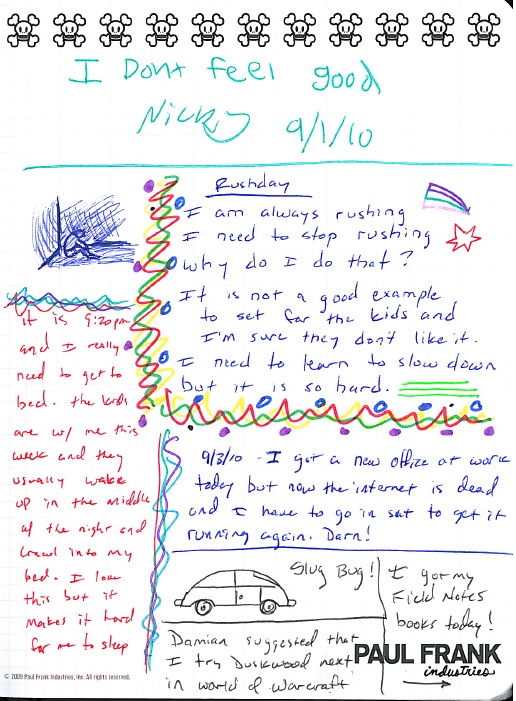 I Dont feel good
Nicky 9/1/10
Rushday
I am always rushing
I need to stop rushing
why do I do that?
It is not a good example
to set for the kids and
I'm sure they don't like it.
I need to learn to slow down
but it is so hard.
It is 9:20pm
and I really
need to get to
bed. the kids
are w/ me this
week and they
usually wake
up in the middle
of the night and
crawl into my
bed. I love
this but it
makes it hard
for me to sleep
9/3/10 - I got a new office at work
today but now the internet is dead
and I have to go in sat to get it
running again. Darn!
Slug Bug!
I got my
Field Notes
books today!
Damian suggested that
I try Duskwood next
in world of warcraft
PAUL FRANK
industries
© 2009 Paul Frank Industries, Inc. All rights reserved.